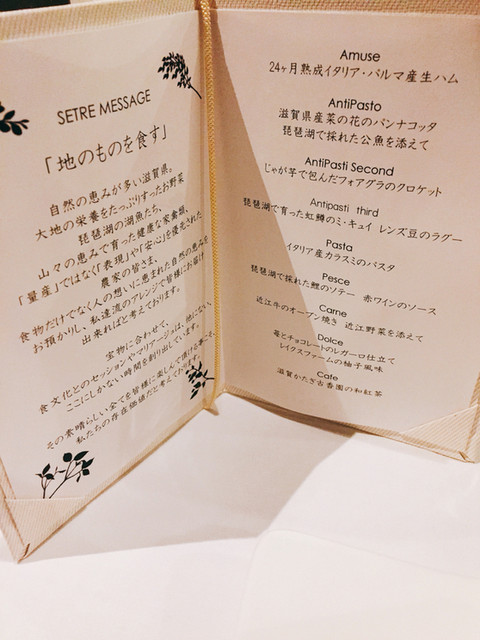 SETRE MESSAGE
「地のものを食す」
自然の恵みが多い滋賀県。
大地の栄養をたっぷりすったお野菜
琵琶湖の湖魚たち、
山々の恵みで育った健康な家禽類。
「量産」ではなく「表現」や「安心」を優先された
農家の皆さま。
食物だけでなく人の想いに恵まれた自然の恵みを
お預かりし、私達流のアレンジで皆様にお届け
出来ればと考えております。
宝物に合わせて、
食文化とのセッションやマリアージュは、他にない、
ここにしかない時間を創り出しています。
その素晴らしい全てを皆様に楽しんで頂ける事こそ、
私たちの存在価値だと考えております。
Amuse
24ヶ月熟成イタリア・パルマ産生ハム
AntiPasto
滋賀県産菜の花のパンナコッタ
琵琶湖で採れた公魚を添えて
AntiPasti Second
じゃが芋で包んだフォアグラのクロケット
Antipasti third
琵琶湖で育った虹鱒のミ・キュイ レンズ豆のラグー
Pasta
イタリア産カラスミのパスタ
Pesce
琵琶湖で採れた鯉のソテー 赤ワインのソース
Carne
近江牛のオーブン焼き 近江野菜を添えて
Dolce
苺とチョコレートのレガーロ仕立て
レイクスファームの柚子風味
Cafe
滋賀かたぎ古香園の和紅茶